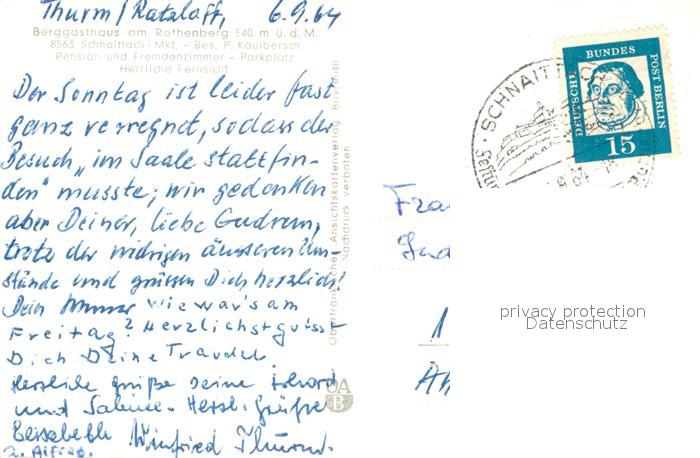 Thurm/Ratzlaff, 6.9.64
Berggasthaus am Rothenberg 540 m ü. d. M.
8563 Schnaittach-Mkt. - Bes. P. Kaulbersch
Pension und Fremdenzimmer - Parkplatz
Herrliche Fernsicht
Der Sonntag ist leider fast
ganz verregnet, sodass der
Besuch "im Saale stattfin-
den" musste; wir gedenken
aber Deiner, liebe Gudrun,
trotz der widrigen äusseren Um-
stände und grüssen Dich herzlich!
Dein
wie war's am
Freitag? Herzlichst grüsst
Dich Deine Traudel.
Herzliche Grüße
und Sabine. Herzl. Grüße
Elisabeth Winfried Thurm.
u. Alfred.
Oberfränkischer Ansichtskartenverlag Bayreuth
Nachdruck verboten
OA
B
SCHNAITT
DEUTSCHE BUNDES POST BERLIN
15
Fra
Gud
privacy protection
Datenschutz